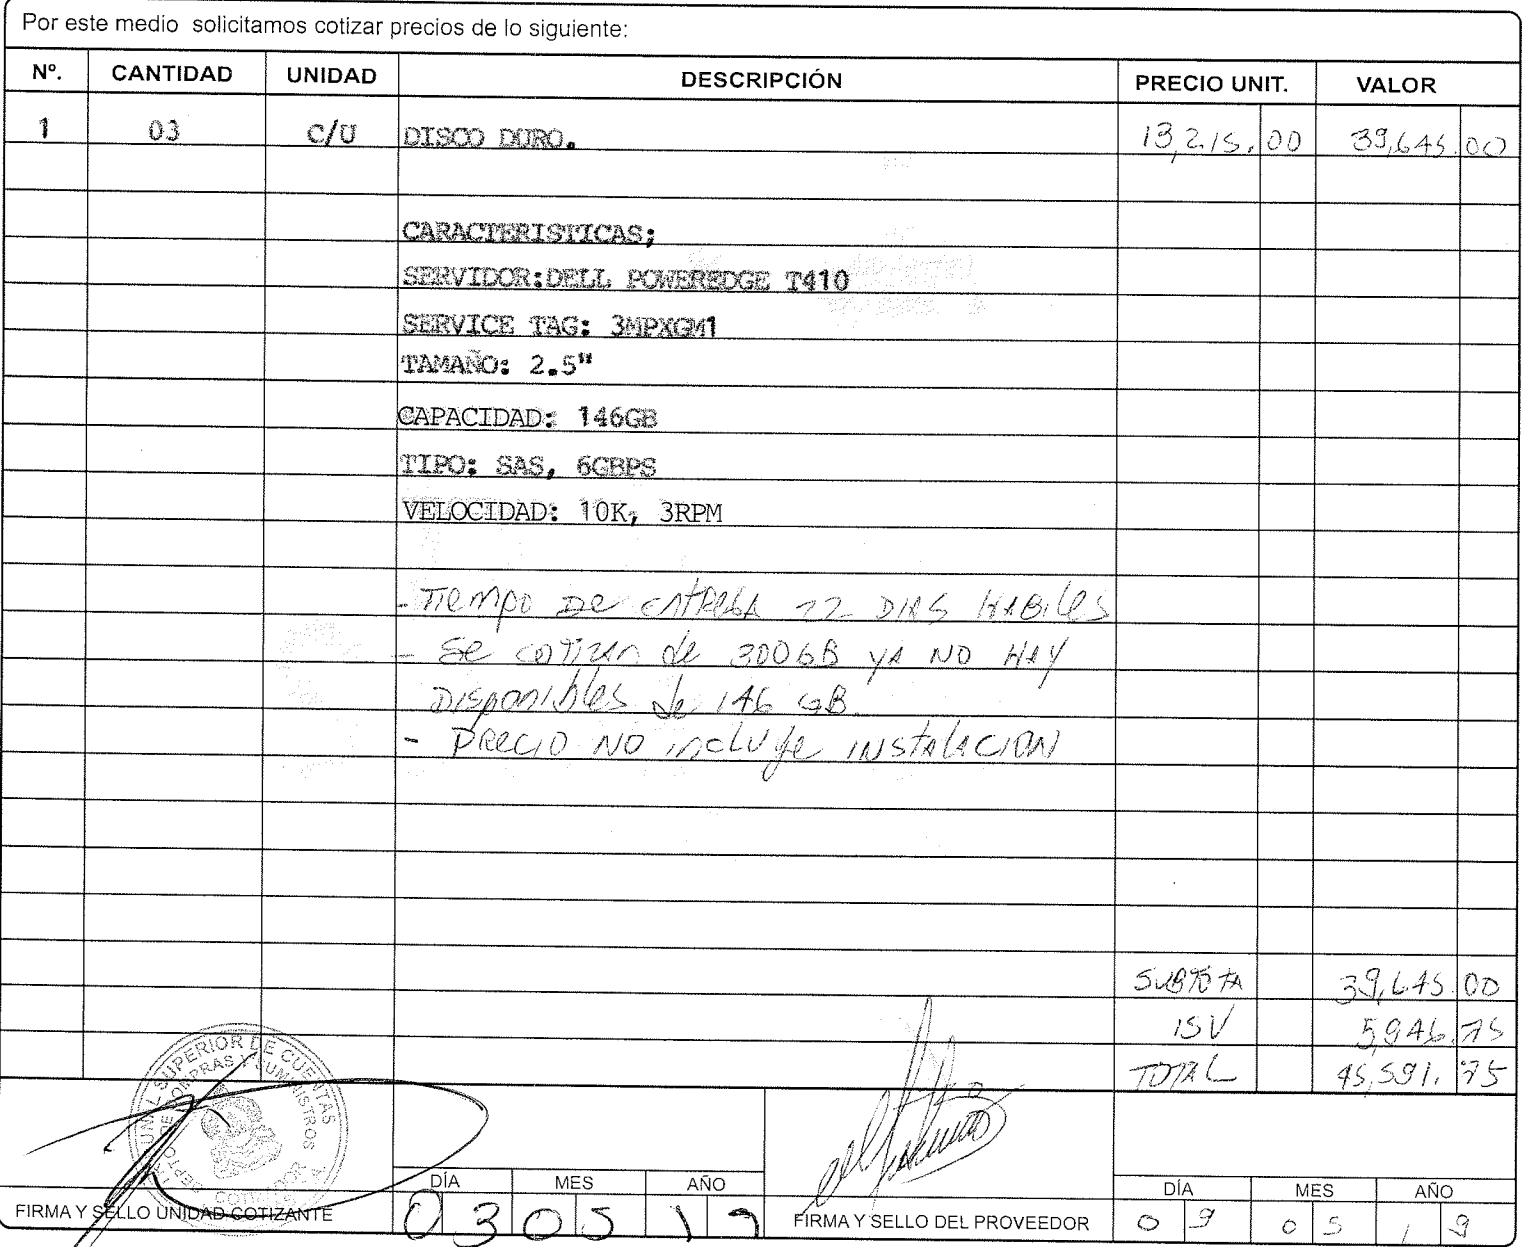 Por este medio solicitamos cotizar precios de lo siguiente:
Nº. CANTIDAD UNIDAD DESCRIPCIÓN PRECIO UNIT. VALOR
1 03 C/U DISCO DURO. 13,215.00 39,645.00
CARACTERISTICAS;
SERVIDOR:DELL POWEREDGE T410
SERVICE TAG: 3MPXGM1
TAMAÑO: 2.5"
CAPACIDAD: 146GB
TIPO: SAS, 6GBPS
VELOCIDAD: 10K, 3RPM
- TIEMPO DE ENTREGA 22 DIAS HABILES
- SE COTIZAN de 300GB YA NO HAY
DISPONIBLES de 146 GB.
- PRECIO NO INCLUYE INSTALACION
SUBTOTA 39,645.00
ISV 5,946.75
TOTAL 45,591.75
TRIBUNAL SUPERIOR DE CUENTAS
DEPTO DE COMPRAS Y SUMINISTROS
COTIZADOR
DÍA MES AÑO
DÍA MES AÑO
FIRMA Y SELLO UNIDAD COTIZANTE 03 05 19 FIRMA Y SELLO DEL PROVEEDOR 09 05 19